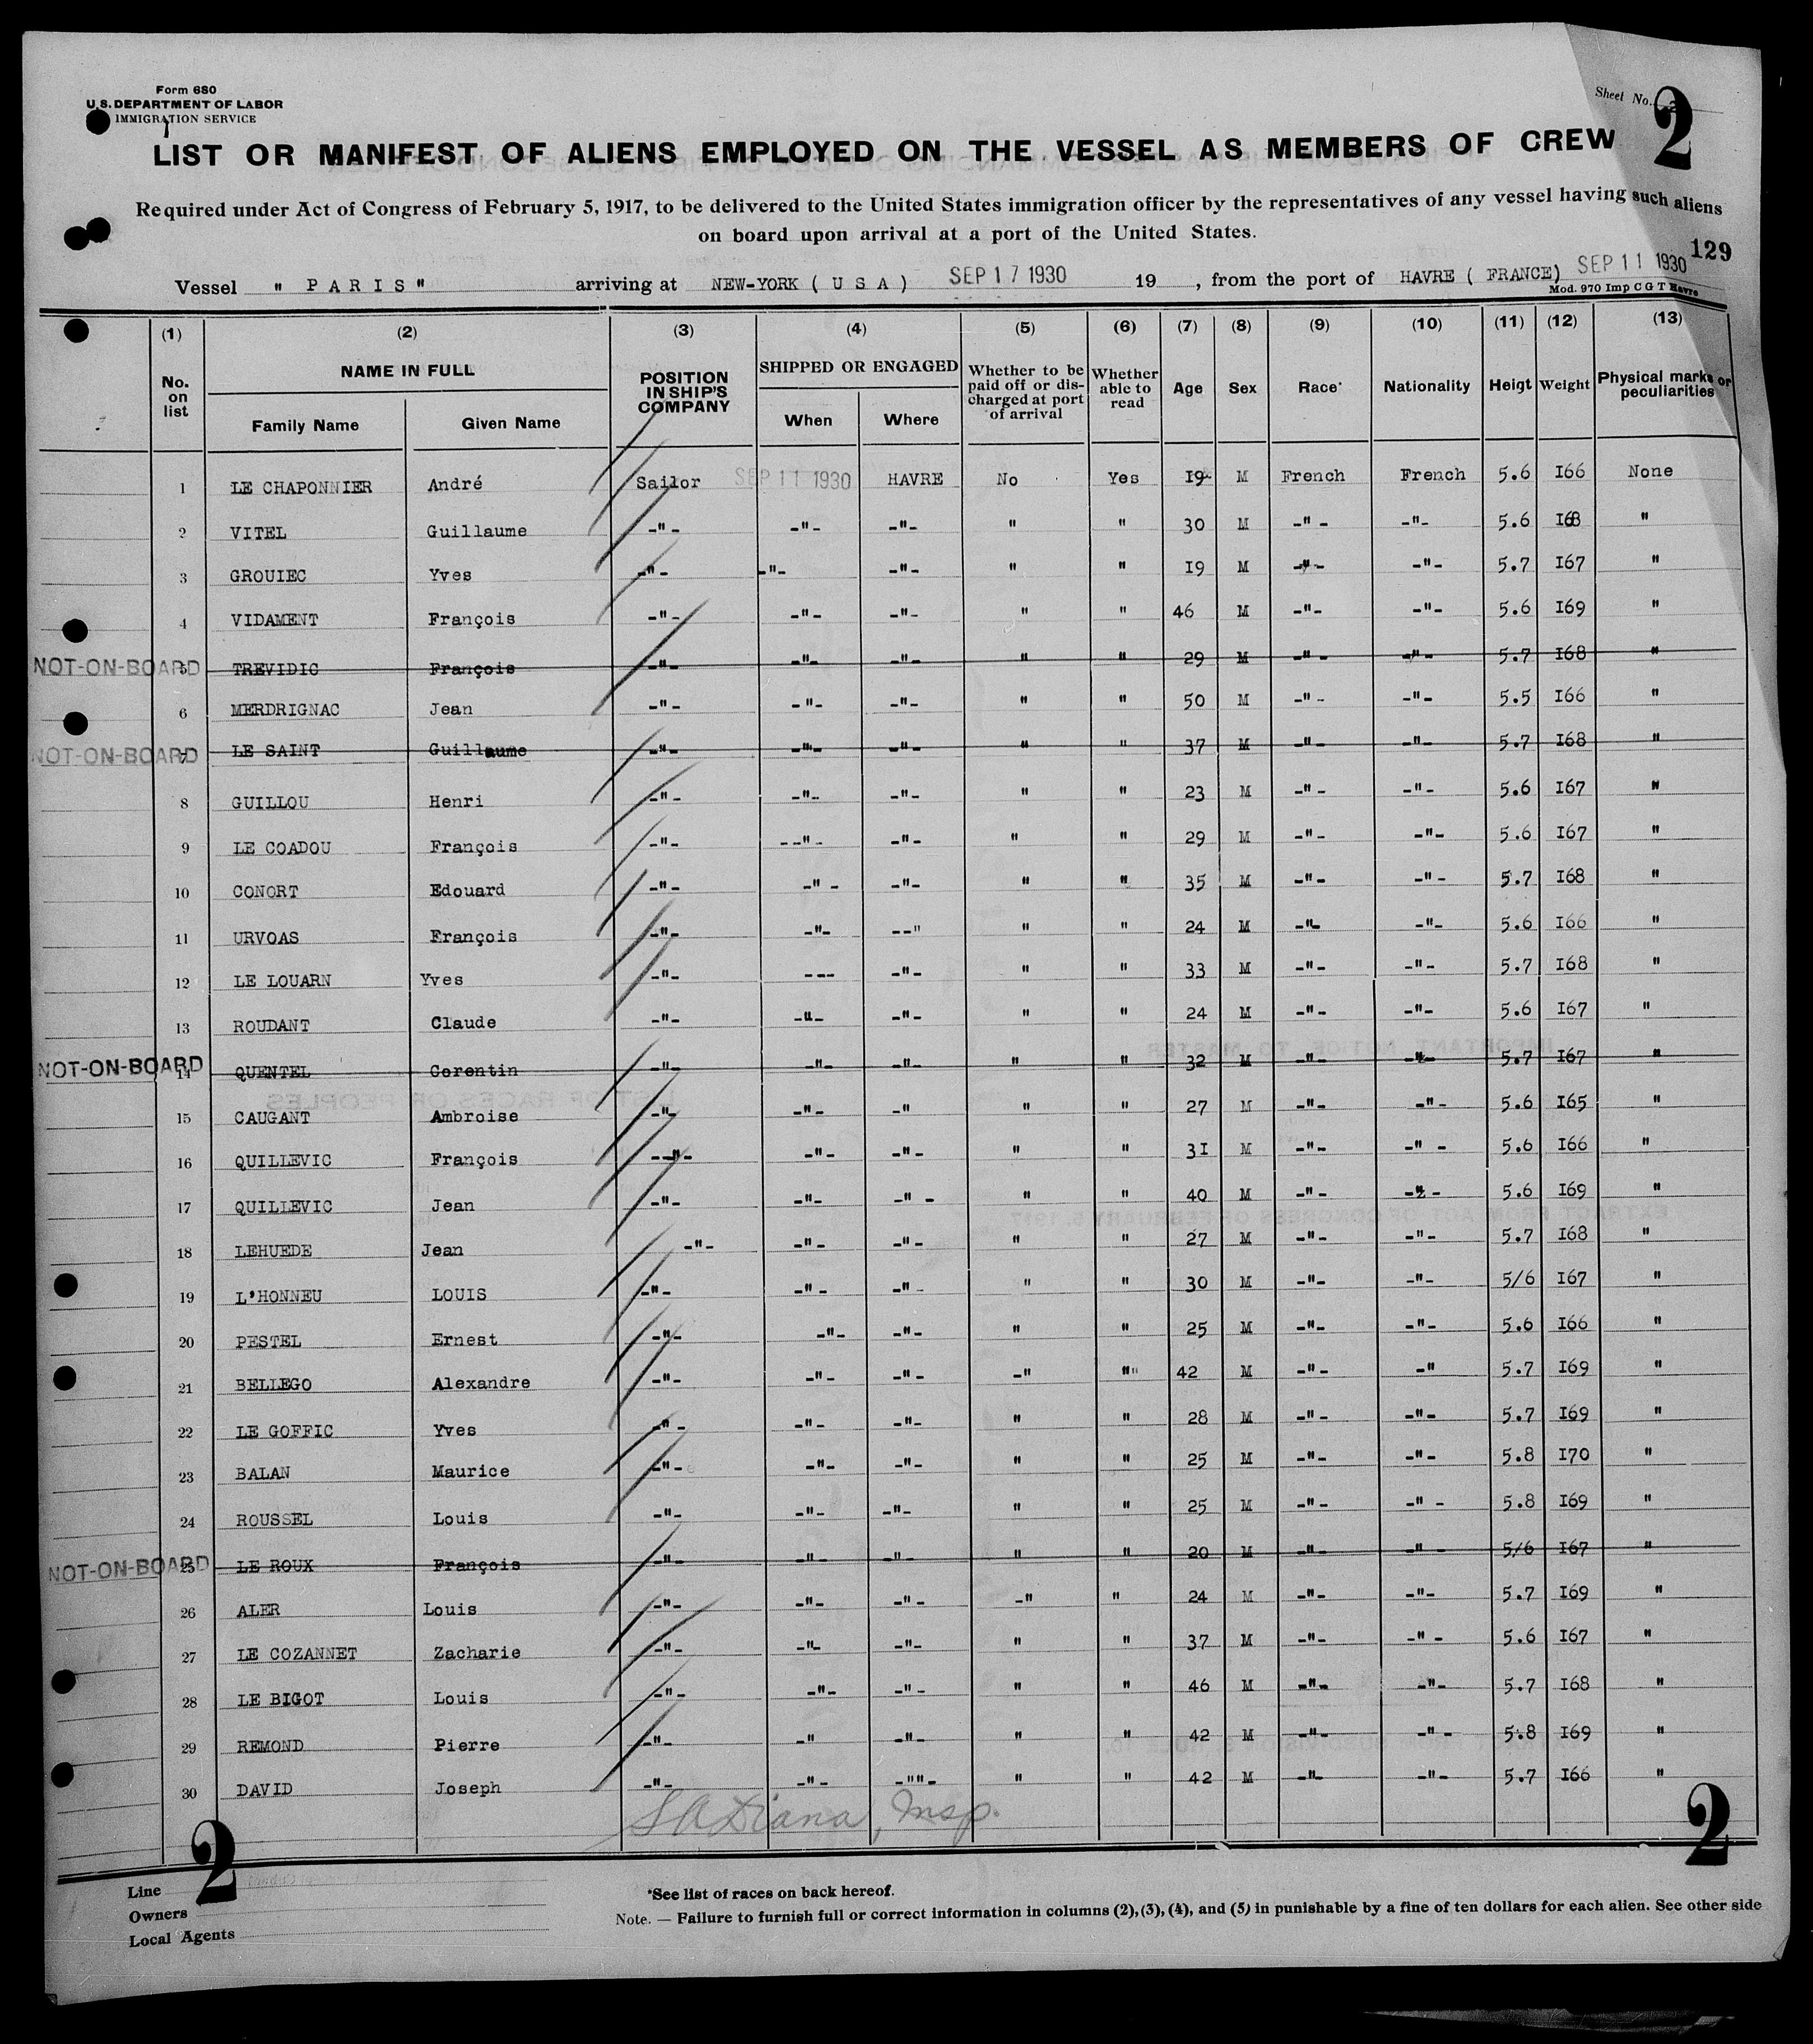 Form 680
U.S. DEPARTMENT OF LABOR
IMMIGRATION SERVICE
Sheet No. 2
2
LIST OR MANIFEST OF ALIENS EMPLOYED ON THE VESSEL AS MEMBERS OF CREW
Required under Act of Congress of February 5, 1917, to be delivered to the United States immigration officer by the representatives of any vessel having such aliens
on board upon arrival at a port of the United States.
129
Vessel " P A R I S " arriving at NEW-YORK ( U S A ) SEP 17 1930 19 , from the port of HAVRE ( FRANCE) SEP 11 1930
Mod. 970 Imp C G T Havre
(1) (2) (3) (4) (5) (6) (7) (8) (9) (10) (11) (12) (13)
No. on list NAME IN FULL Family Name Given Name POSITION IN SHIP'S COMPANY SHIPPED OR ENGAGED When Where Whether to be paid off or discharged at port of arrival Whether able to read Age Sex Race* Nationality Heigt Weight Physical marks or peculiarities
1 LE CHAPONNIER André Sailor SEP 11 1930 HAVRE No Yes I9 M French French 5.6 I66 None
2 VITEL Guillaume -"- -"- -"- " " 30 M -"- -"- 5.6 I68 "
3 GROUIEC Yves -"- -"- -"- " " I9 M -"- -"- 5.7 I67 "
4 VIDAMENT François -"- -"- -"- " " 46 M -"- -"- 5.6 I69 "
NOT-ON-BOARD 5 TREVIDIC François -"- -"- -"- " " 29 M -"- -"- 5.7 I68 "
6 MERDRIGNAC Jean -"- -"- -"- " " 50 M -"- -"- 5.5 I66 "
NOT-ON-BOARD 7 LE SAINT Guillaume -"- -"- -"- " " 37 M -"- -"- 5.7 I68 "
8 GUILLOU Henri -"- -"- -"- " " 23 M -"- -"- 5.6 I67 "
9 LE COADOU François -"- --"- -"- " " 29 M -"- -"- 5.6 I67 "
10 CONORT Edouard -"- -"- -"- " " 35 M -"- -"- 5.7 I68 "
11 URVOAS François -"- -"- --" " " 24 M -"- -"- 5.6 I66 "
12 LE LOUARN Yves -"- --- -"- " " 33 M -"- -"- 5.7 I68 "
13 ROUDANT Claude -"- -"- -"- " " 24 M -"- -"- 5.6 I67 "
NOT-ON-BOARD 14 QUENTEL Corentin -"- -"- -"- " " 32 M -"- -"- 5.7 I67 "
15 CAUGANT Ambroise -"- -"- -" " " 27 M -"- -"- 5.6 I65 "
16 QUILLEVIC François --"- -"- -"- " " 3I M -"- -"- 5.6 I66 "
17 QUILLEVIC Jean -"- -"- -"- " " 40 M -"- -"- 5.6 I69 "
18 LEHUEDE Jean -"- -"- -"- " " 27 M -"- -"- 5.7 I68 "
19 L'HONNEU LOUIS -"- -"- -"- " " 30 M -"- -"- 5/6 I67 "
20 PESTEL Ernest -"- -"- -"- " " 25 M -"- -"- 5.6 I66 "
21 BELLEGO Alexandre -"- -"- -"- -" "" 42 M -"- -" 5.7 I69 "
22 LE GOFFIC Yves -"- -"- -"- " " 28 M -"- -"- 5.7 I69 "
23 BALAN Maurice -"- -"- -"- " " 25 M -"- -"- 5.8 I70 "
24 ROUSSEL Louis -"- -"- -"- " " 25 M -"- -"- 5.8 I69 "
NOT-ON-BOARD 25 LE ROUX François -"- -"- -"- " " 20 M -"- -"- 5/6 I67 "
26 ALER Louis -"- -"- -"- -" " 24 M -"- -"- 5.7 I69 "
27 LE COZANNET Zacharie -"- -"- -"- " " 37 M -"- -"- 5.6 I67 "
28 LE BIGOT Louis -"- -"- -"- " " 46 M -"- -"- 5.7 I68 "
29 REMOND Pierre -"- -" -"- " " 42 M -"- -"- 5.8 I69 "
30 DAVID Joseph -"- -"- -""- " " 42 M -"- -"- 5.7 I66 "
S A Diana, Insp.
2 2
Line
Owners
Local Agents
*See list of races on back hereof.
Note. — Failure to furnish full or correct information in columns (2), (3), (4), and (5) in punishable by a fine of ten dollars for each alien. See other side